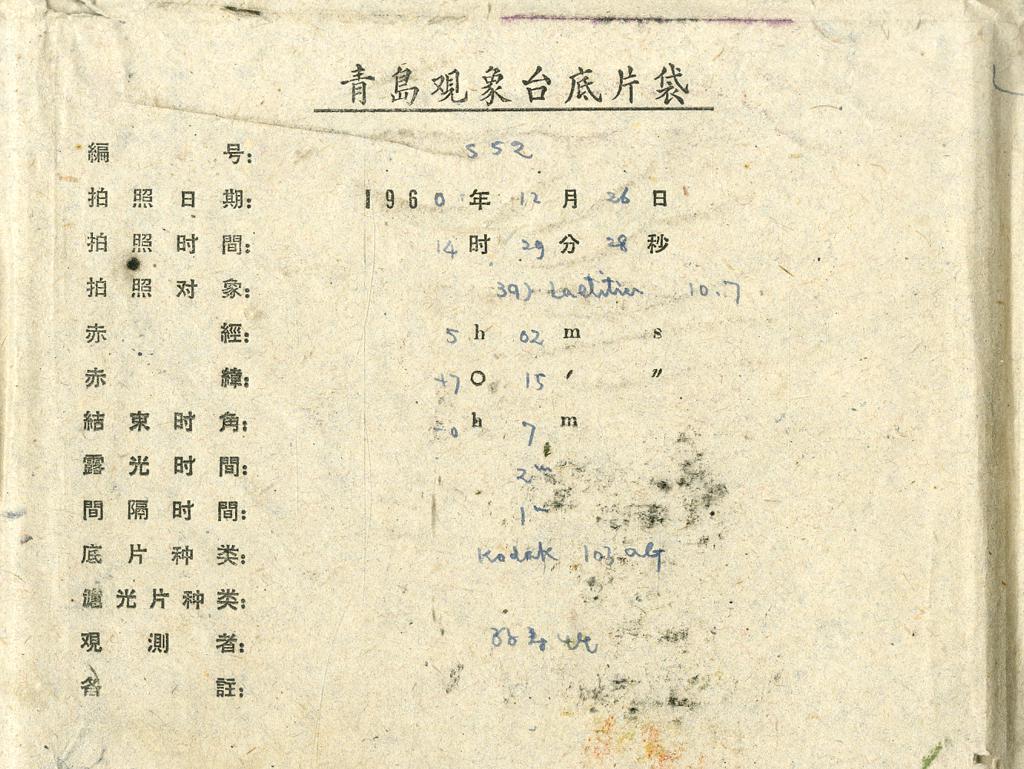 青島观象台底片袋
編号: S52
拍照日期: 1960年12月26日
拍照时間: 14时29分28秒
拍照对象: 39) Laetitia 10.7
赤經: 5h 02m s
赤緯: +7○ 15′ ″
結束时角: -0h 7m
露光时間: 2m
間隔时間: 1m
底片种类: Kodak 103aG
濾光片种类:
观測者:
备註: